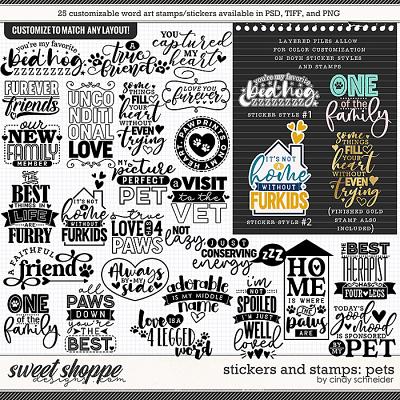 25 customizable word art stamps/stickers available in PSD, TIFF, and PNG
CUSTOMIZE TO MATCH ANY LAYOUT!
you're my favorite
bed hog
zzzzzzz
a
true
friend
you
captured
my
heart
FUREVER
friends
UNCO
NDIT
IONAL
LOVE
some
THINGS
FILL
YOUR
heart
WITHOUT
EVEN
trying
I love you
furever
PAWPRINTS
ON MY HEART
our
NEW
FAMILY
MEMBER
my
picture
PERFECT
PET
a VISIT
to the
VET
THE
BEST
THINGS IN
LIFE
ARE
FURRY
IT'S NOT
home
WITHOUT
FURKIDS
true
LOVE HAS
4
PAWS
not
lazy
JUST
CONSERVING
energy
zzz
A FAITHFUL
friend
Always
BY MY
side
adorable
IS MY MIDDLE
name
I'M NOT
SPOILED
I'M JUST
well
loved
HO
ME
IS WHERE
THE
paws
ARE
THE BEST
THERAPIST
HAS
FOUR LEGS
ONE
of the
family
all
PAWS
DOWN
you're
the
BEST
LOVE IS A
4 LEGGED
word
TODAY'S
good
mood
IS SPONSORED
BY MY
PET
LAYERED FILES ALLOW
FOR COLOR CUSTOMIZATION
ON BOTH STICKER STYLES
AND STAMPS
you're my favorite
bed hog
zzzzzzz
STICKER STYLE #1
ONE
of the
family
IT'S NOT
home
WITHOUT
FURKIDS
STICKER STYLE #2
some
THINGS
FILL
YOUR
heart
WITHOUT
EVEN
trying
(FINISHED GOLD
STAMP ALSO
INCLUDED)
sweet shoppe
designs.com
stickers and stamps: pets
by cindy schneider